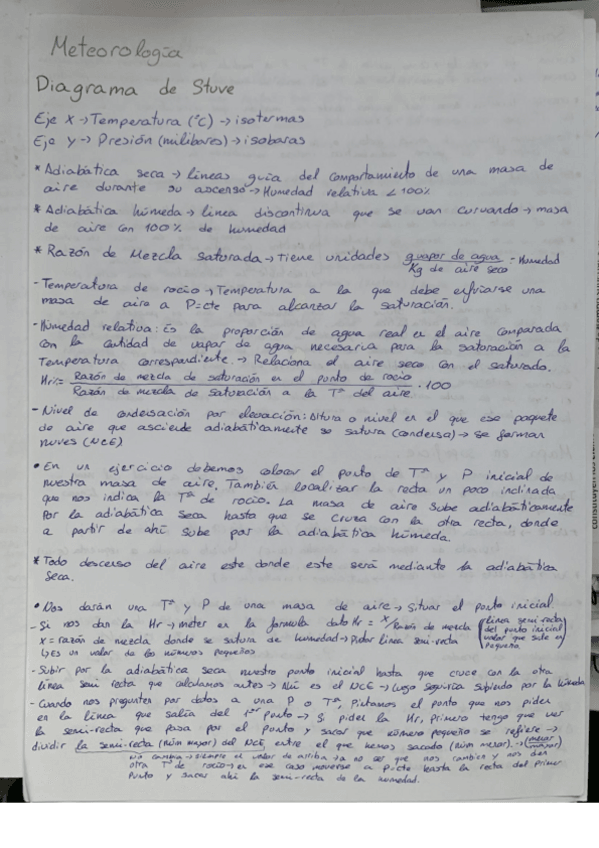 Meteorología
Diagrama de Stuve
Eje x → Temperatura (°C) → isotermas
Eje y → Presión (milibares) → isobaras
* Adiabática seca → líneas guía del comportamiento de una masa de
aire durante su ascenso → Humedad relativa < 100%
* Adiabática húmeda → línea discontinua que se van curvando → masa
de aire con 100% de humedad
* Razón de Mezcla Saturada → Tiene unidades g vapor de agua / Kg de aire seco = Humedad
- Temperatura de rocío → Temperatura a la que debe enfriarse una
masa de aire a P=cte para alcanzar la saturación.
- Humedad relativa: Es la proporción de agua real en el aire comparada
con la cantidad de vapor de agua necesaria para la saturación a la
Temperatura correspondiente. → Relaciona el aire seco con el saturado.
Hr% = Razón de mezcla de saturación en el punto de rocío / Razón de mezcla de saturación a la Tª del aire · 100
- Nivel de condensación por elevación: altura o nivel en el que ese paquete
de aire que asciende adiabáticamente se satura (condensa) → se forman
nuves (NCE)
• En un ejercicio debemos colocar el punto de Tª y P inicial de
nuestra masa de aire. También localizar la recta un poco inclinada
que nos indica la Tª de rocío. La masa de aire sube adiabáticamente
por la adiabática seca hasta que se cruza con la otra recta, donde
a partir de ahí sube por la adiabática húmeda.
* Todo descenso del aire este donde este será mediante la adiabática
seca.
• Nos darán una Tª y P de una masa de aire → situar el punto inicial
- Si nos dan la Hr → meter en la formula dato Hr = x/razón de mezcla (línea semi-recta del punto inicial valor que sale en pequeña)
x = razón de mezcla donde se satura de humedad → Pintar línea semi-recta
↳ Es un valor de los números pequeños
- Subir por la adiabática seca nuestro punto inicial hasta que cruce con la otra
línea semi recta que calculamos antes → Ahí es el NCE → Luego seguirá subiendo por la húmeda
- Cuando nos pregunten por datos a una P o Tª, Pintamos el punto que nos piden
en la línea que salía del 1er punto → Si piden la Hr, primero tengo que ver
la semi-recta que pasa por el punto y sacar que número pequeño se refiere →
dividir la semi-recta (núm mayor) del NCE entre el que hemos sacado (núm menor). → (menor/mayor)
No cambia → siempre el valor de arriba → a no ser que nos cambien y nos den
otra Tª de rocío → en ese caso moverse a P=cte hasta la recta del primer
Punto y sacar ahí la semi-recta de la humedad.